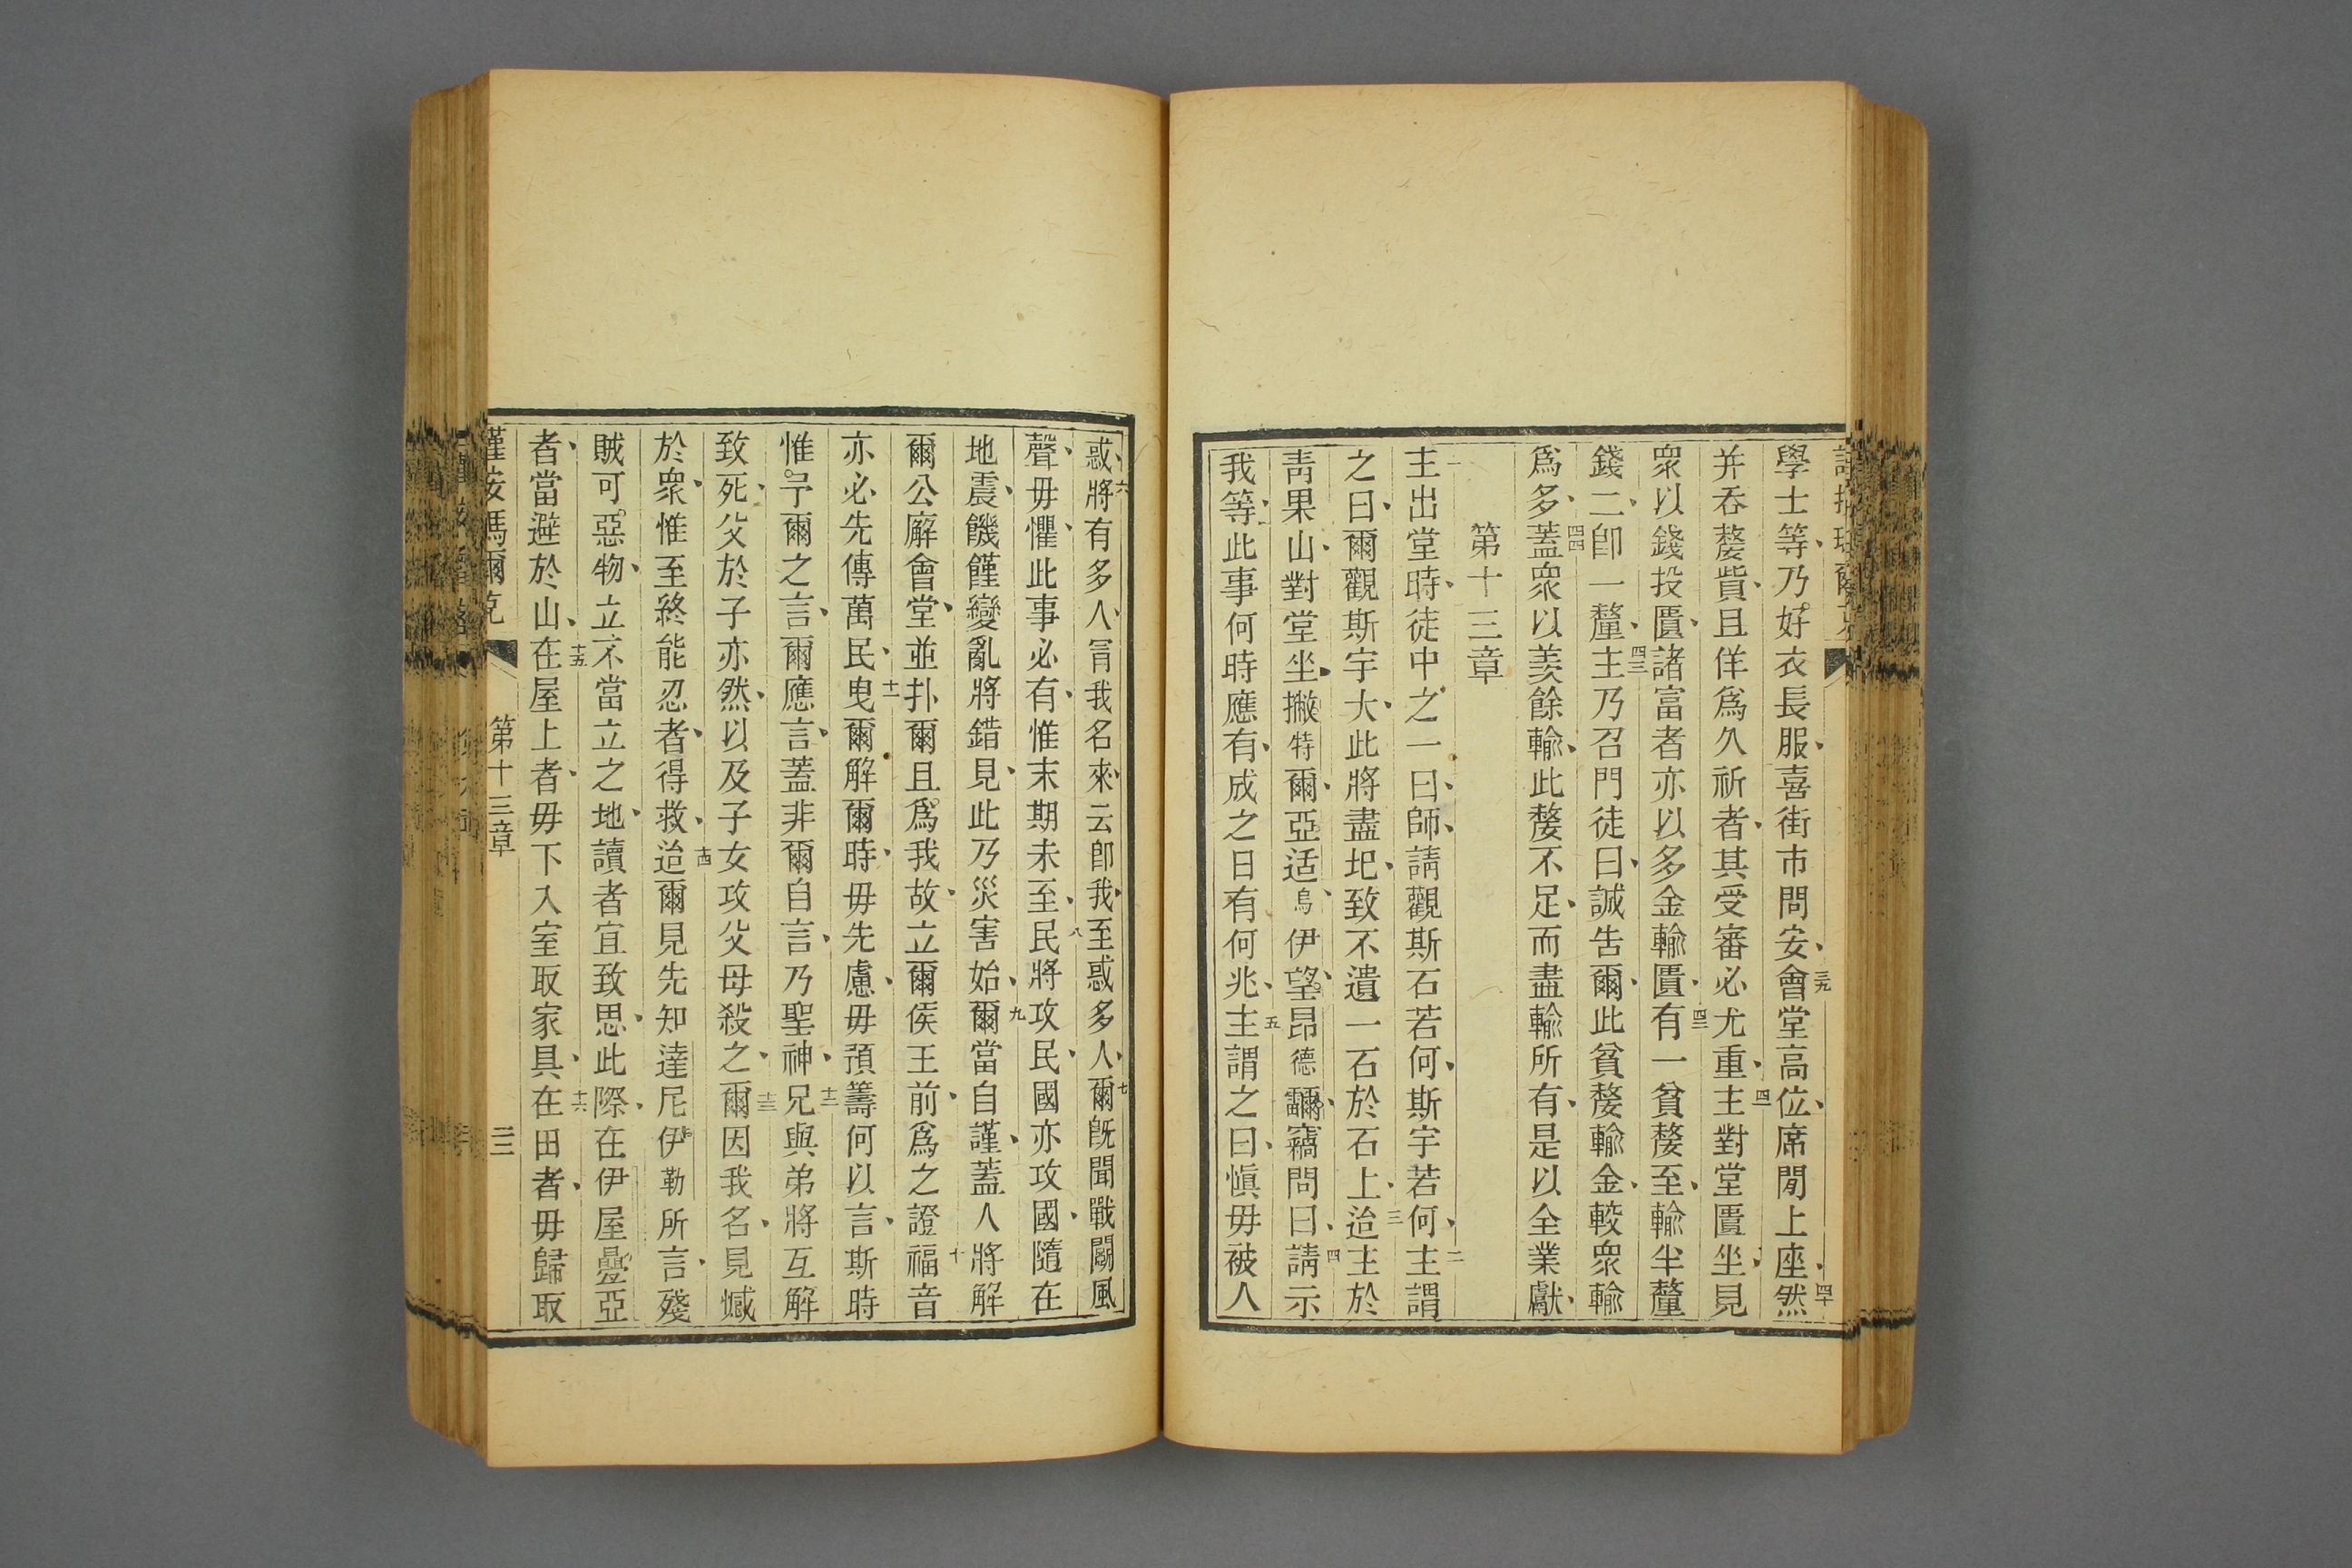 學士等、乃好衣長服、喜街市問安、三九會堂高位、席閒上座、四十然
并吞嫠貲、且佯爲久祈者、其受審必尤重、四一主對堂匱坐、見
衆以錢投匱、諸富者亦以多金輸匱、四二有一貧嫠至、輸半釐
錢二、卽一釐、四三主乃召門徒曰、誠吿爾、此貧嫠輸金、較衆輸
爲多、四四蓋衆以羨餘輸、此嫠不足、而盡輸所有、是以全業獻、
第十三章
一主出堂時、徒中之一曰、師、請觀斯石若何、斯宇若何、二主謂
之曰、爾觀斯宇大、此將盡圯、致不遺一石於石上、三迨主於
靑果山、對堂坐、撇特爾、亞适烏、伊望、昂德、竊問曰、四請示
我等、此事何時應有、成之日有何兆、五主謂之曰、愼毋被人
惑、六將有多人、冐我名來、云卽我、至惑多人、七爾旣聞戰鬭風
聲、毋懼、此事必有、惟末期未至、八民將攻民、國亦攻國、隨在
地震、饑饉變亂將錯見、此乃災害始、九爾當自謹、蓋人將解
爾公廨會堂、並扑爾、且爲我故、立爾侯王前、爲之證、十福音
亦必先傳萬民、十一曳爾解爾時、毋先慮、毋預籌何以言、斯時
惟予爾之言、爾應言、蓋非爾自言、乃聖神、十二兄與弟將互解
致死、父於子亦然、以及子女攻父母殺之、十三爾因我名、見憾
於衆、惟至終能忍者、得救、十四迨爾見先知達尼伊勒所言、殘
賊可惡物、立不當立之地、讀者宜致思、此際、在伊屋疊亞
者、當避於山、十五在屋上者、毋下入室取家具、十六在田者、毋歸取
瑪爾克 第十三章 三二